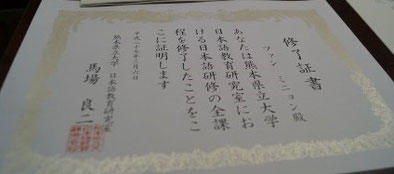 修了証書
ファン ミニョン殿
あなたは熊本県立大学
日本語教育研究室にお
ける日本語研修の全課
程を修了したことをこ
こに証明します
平成二十七年二月六日
熊本県立大学 日本語教育研究室
馬場 良二